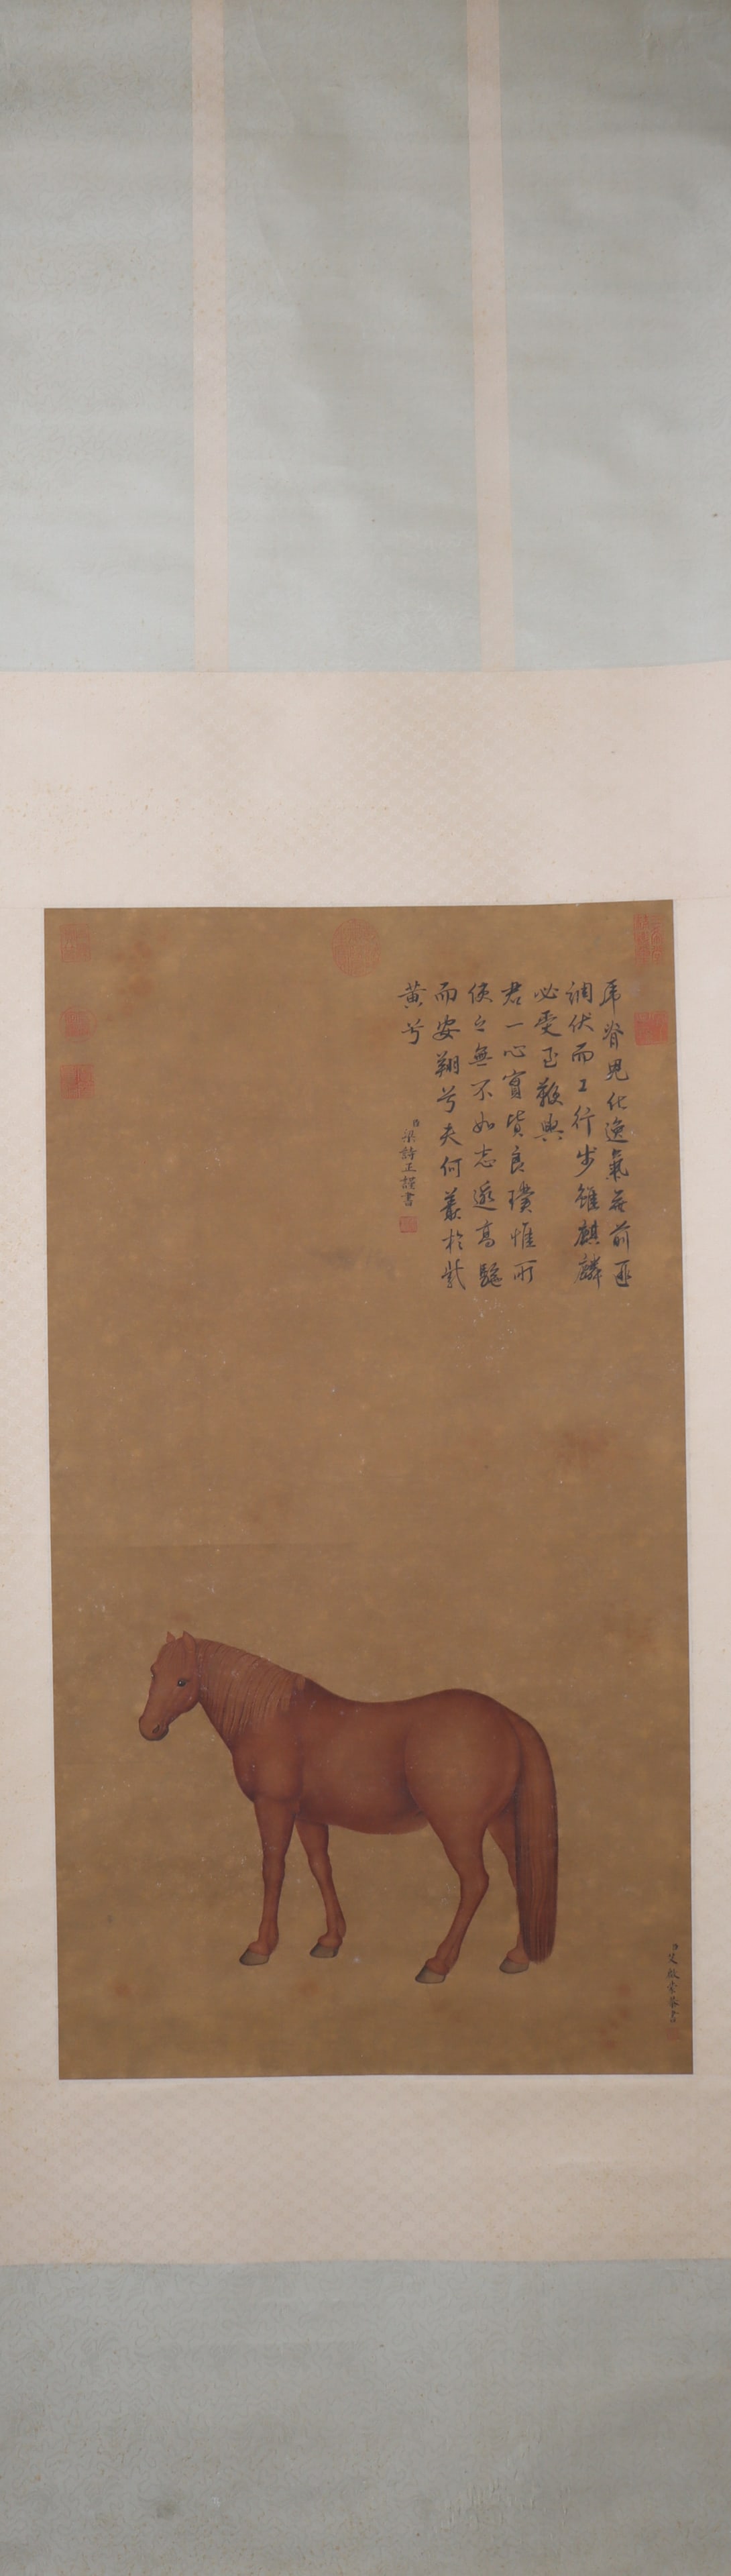 虎脊兕化逸氣無前亟
調伏而工行步雖麒麟
必受至鞭與
君一心實皆良璞惟所
使之無不如志遜高騁
而安翔兮夫何羨於紫
黃兮
臣梁詩正謹書
臣艾啟蒙恭畫